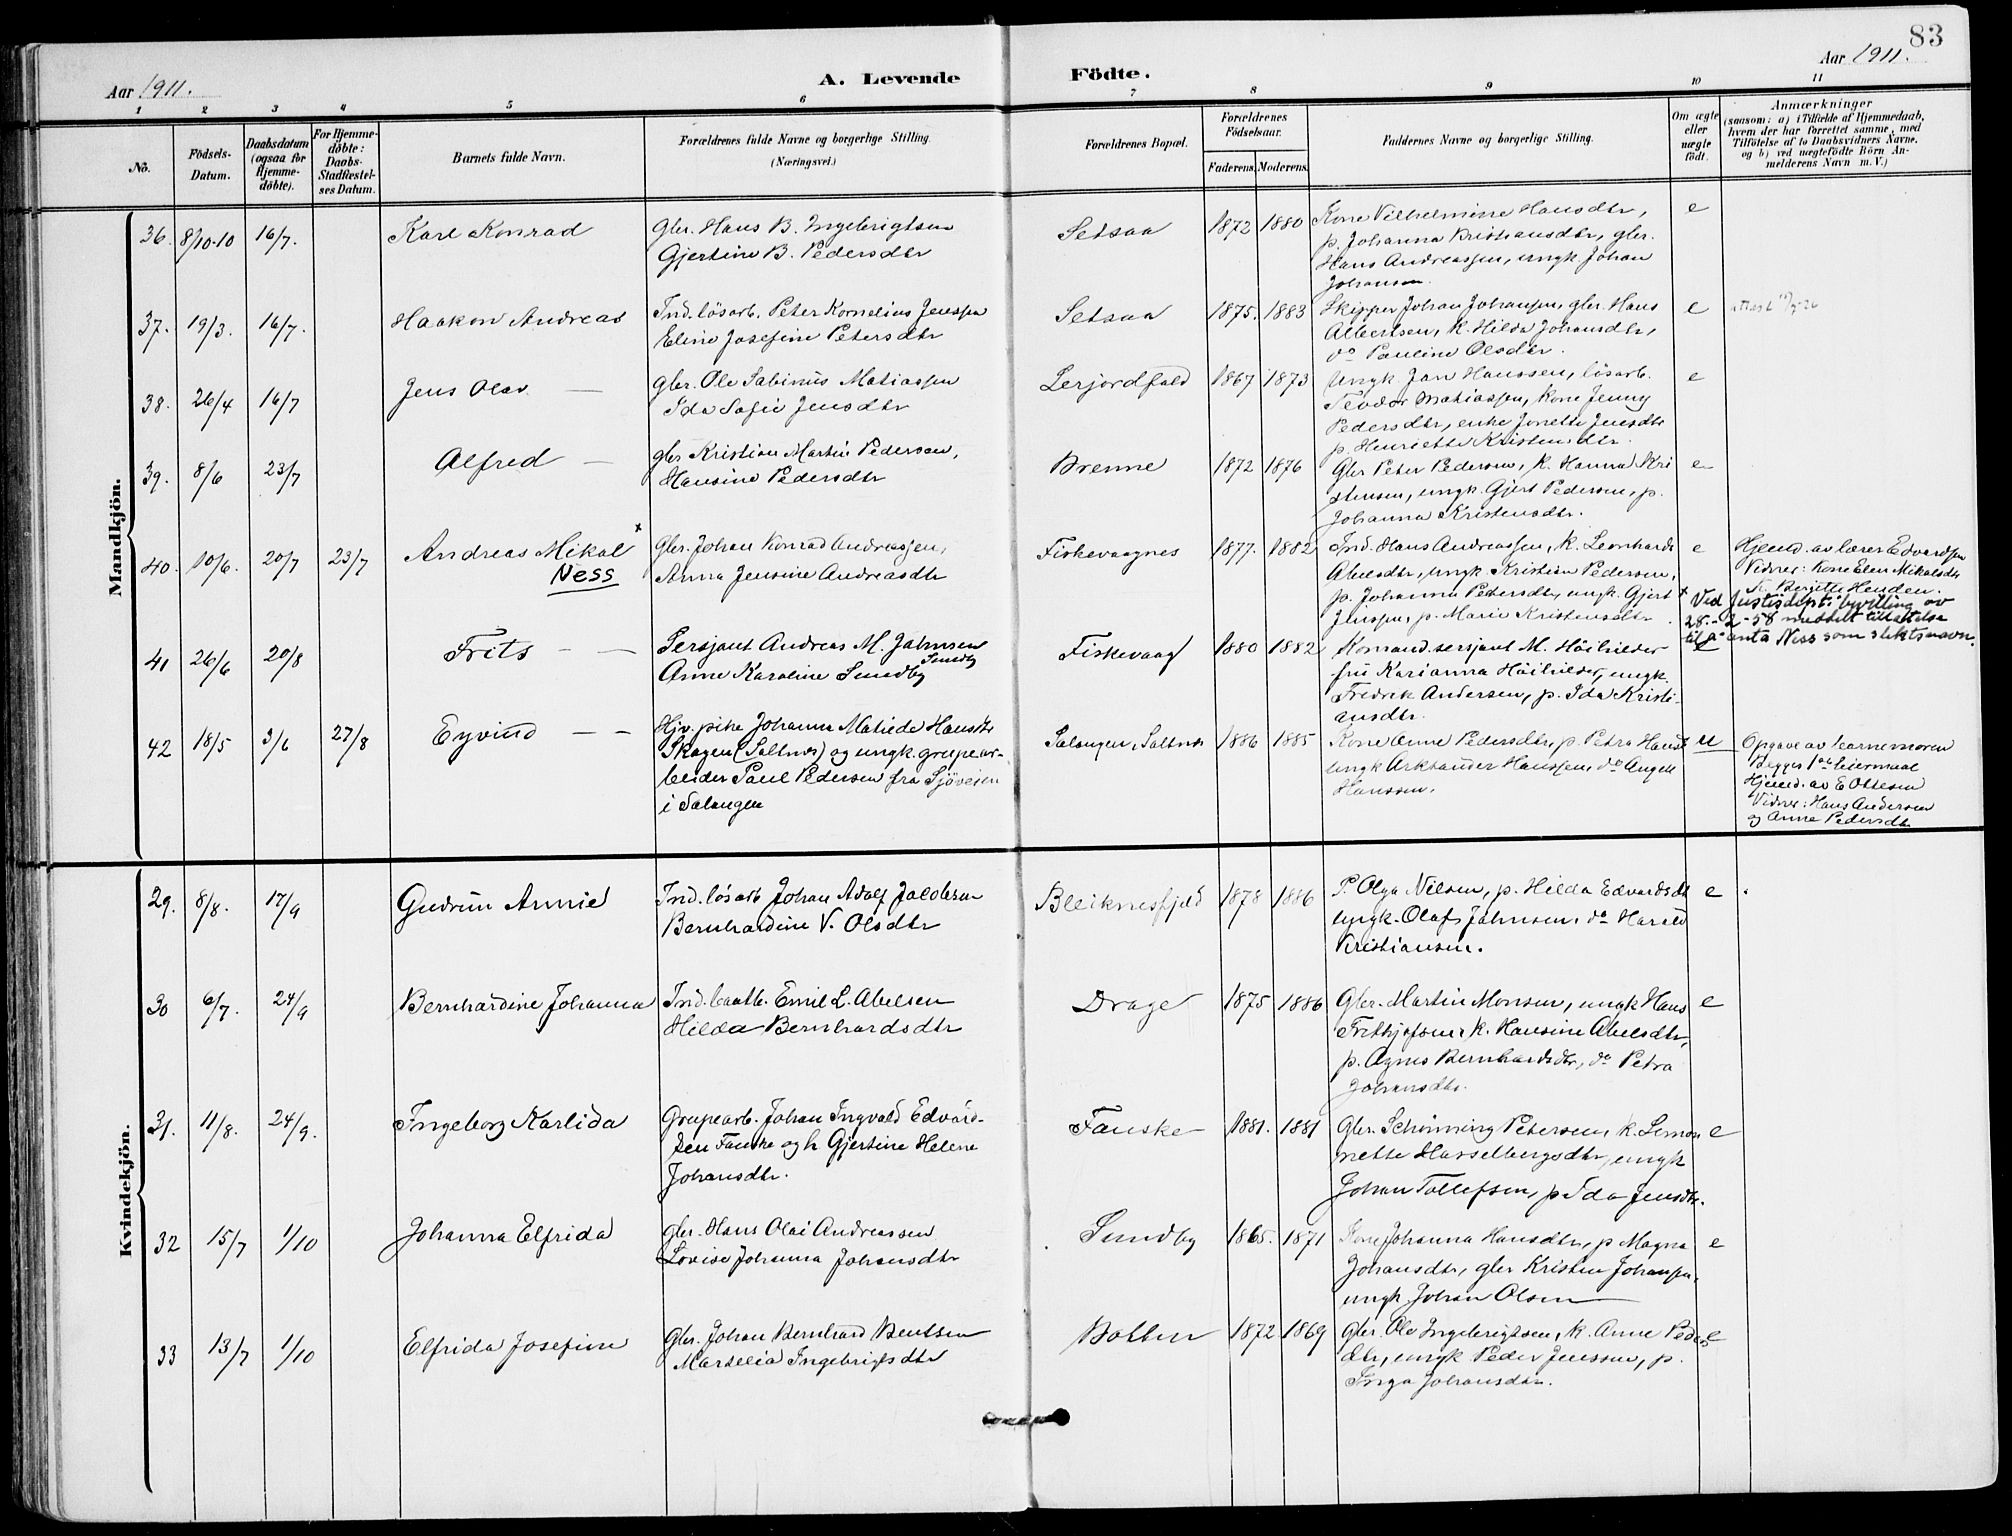 83
Aar 1911.
A. Levende Födte.
Aar 1911.
1 2 3 4 5 6 7 8 9 10 11
No.
Födsels-Datum.
Daabsdatum (ogsaa for Hjemme-döbte).
For Hjemme-döbte: Daabs-Stadfæstel-ses Datum.
Barnets fulde Navn.
Forældrenes fulde Navne og borgerlige Stilling.
(Næringsvei.)
Forældrenes Bopæl.
Forældrenes Födselsaar.
Faderens. Moderens.
Faddernes Navne og borgerlige Stilling.
Om ægte eller uægte födt.
Anmærkninger
(saasom: a) i Tilfælde af Hjemmedaab,
hvem der har forrettet samme, med
Tilföielse af to Daabsvidners Navne,
og b) ved uægtefödte Börn An-
melderens Navn m. V.)
Mandkjön.
36. 8/10-10 16/7. Karl Konrad Gbr. Hans B. Ingebrigtsen Setsaa 1872 1880 Kone Vilhelmine Hansdtr, e
Gjertine B. Pedersdtr p. Johanna Kristiansdtr, gbr.
Hans Andreassen, ungk. Johan
Johansen.
37. 19/3. 16/7. Haakon Andreas Ind. lösarb. Peter Kornelius Jenssen Setsaa 1875. 1883 Skipper Johan Johansen, gbr. Hans e
Eline Josefine Petersdtr Albertsen, k. Hilda Johansdtr,
do Pauline Olsdtr.
38. 26/4 16/7 Jens Olav — gbr. Ole Sabinus Matiassen Lerjordfald 1867 1873 Ungk. Jan Hanssen, lösarb. e
Ida Sofie Jensdtr Teodor Matiassen, Kone Jenny
Pedersdtr, enke Jonette Jensdtr
p. Henriette Kristensdtr.
39. 8/6 23/7 Alfred — gbr Kristian Martin Pedersen, Brenne 1872 1876 Gbr Peter Pedersen, k. Hanna Kri e
Hansine Pedersdtr stensen, ungk. Gjert Pedersen, p.
Johanna Kristensdtr.
40. 10/6. 20/7 23/7 Andreas Mikal x Gbr. Johan Konrad Andreassen, Fiskevaagnes 1877. 1882 Ind. Hans Andreassen, k. Leonharde e Hjemd. av lærer Edvardsen
Ness Anna Jensine Andreasdtr Abelsdtr, ungk. Kristian Pedersen, Vidner: Kone Elen Mikalsdtr
p. Johanna Petersdtr, ungk. Gjert
Jenssen, p. Marie Kristensdtr.
x Ved Justisdepts bevilling av
28.-2-58 meddelt tillatelse
til å anta Ness som slektsnavn.
41 26/6 20/8 Frits — — Sersjant Andreas M. Johnsen Sundby Fiskevaag 1880 1882 Komand. sersjant M. Höihilder e
Anne Karoline Sundby fru Karianna Höihilder, ungk.
Fredrik Andersen, p. Ida Kristi-
ansdtr.
42 18/5 3/6 27/8 Eyvind — — Hjv. pike Johanna Matilde Hansdtr Salangen, Saltnes 1886 1885 Kone Anne Pedersdtr, p. Petra Hansd U Opgave av barnemoren
Skagen (Saltnes) og ungk. grupear- ungk Hanssen, do Begges 1ste leiermaal
beider Paul Pedersen fra Sjöveien Hanssen. Hjemd. av E Ottesen
i Salangen Vidner: Hans Andersen
og Anne Pedersdtr
Kvindekjön.
29. 8/8. 17/9 Gudrun Annie Ind. lösarb Johan Adolf Jakobsen Bleiknesfjeld 1878 1886 P. Olga Nilsen, p. Hilda Edvardsdtr e
Bernhardine V. Olsdtr ungk. Olaf Johnsen, do Harald
Kristiansen.
30 6/7. 24/9 Bernhardine Johanna Ind. baatb. Emil L. Abelsen Drage 1875 1886 Gbr. Martin Monsen, ungk Hans e
Hilda Bernhardsdtr Frithjofsen, k. Hansine Abelsdtr,
p. Agnes Bernhardsdtr, do Petra
Johansdtr.
31. 11/8. 24/9. Ingeborg Karlida Grupearb. Johan Ingvald Edvard- Fauske 1881. 1881 Gbr. Schönning Petersen, k. Simon e
sen Fauske og h Gjertine Helene nette Hasselbergsdtr, ungk
Johansdtr. Johan Tollefsen, p Ida Jensdtr.
32 15/7 1/10 Johanna Elfrida gbr. Hans Olai Andreassen Sundby 1865. 1871 Kone Johanna Hansdtr, p Magna e
Lovise Johanna Johansdtr Johansdtr, gbr Kristen Johansen,
ungk. Johan Olsen
33 13/7 1/10 Elfrida Josefine Gbr. Johan Bernhard Bentsen Botten 1872 1869 Gbr. Ole Ingebrigtsen, k. Anne Peders e
Marselia Ingebrigtsdtr dtr, ungk Peder Jenssen, p.
Inga Johansdtr.